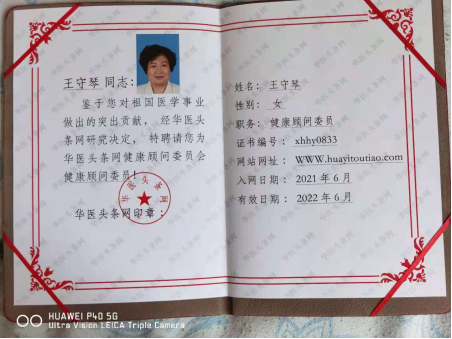 王守琴 同志:
鉴于您对祖国医学事业
做出的突出贡献, 经华医头
条网研究决定, 特聘请您为
华医头条网健康顾问委员会
健康顾问委员!
华医头条网印章:
华医头条网
姓名: 王守琴
性别: 女
职务: 健康顾问委员
证书编号: xhhy0833
网站网址: WWW.huayitoutiao.com
入网日期: 2021 年 6 月
有效日期: 2022 年 6 月
HUAWEI P40 5G
Ultra Vision LEICA Triple Camera